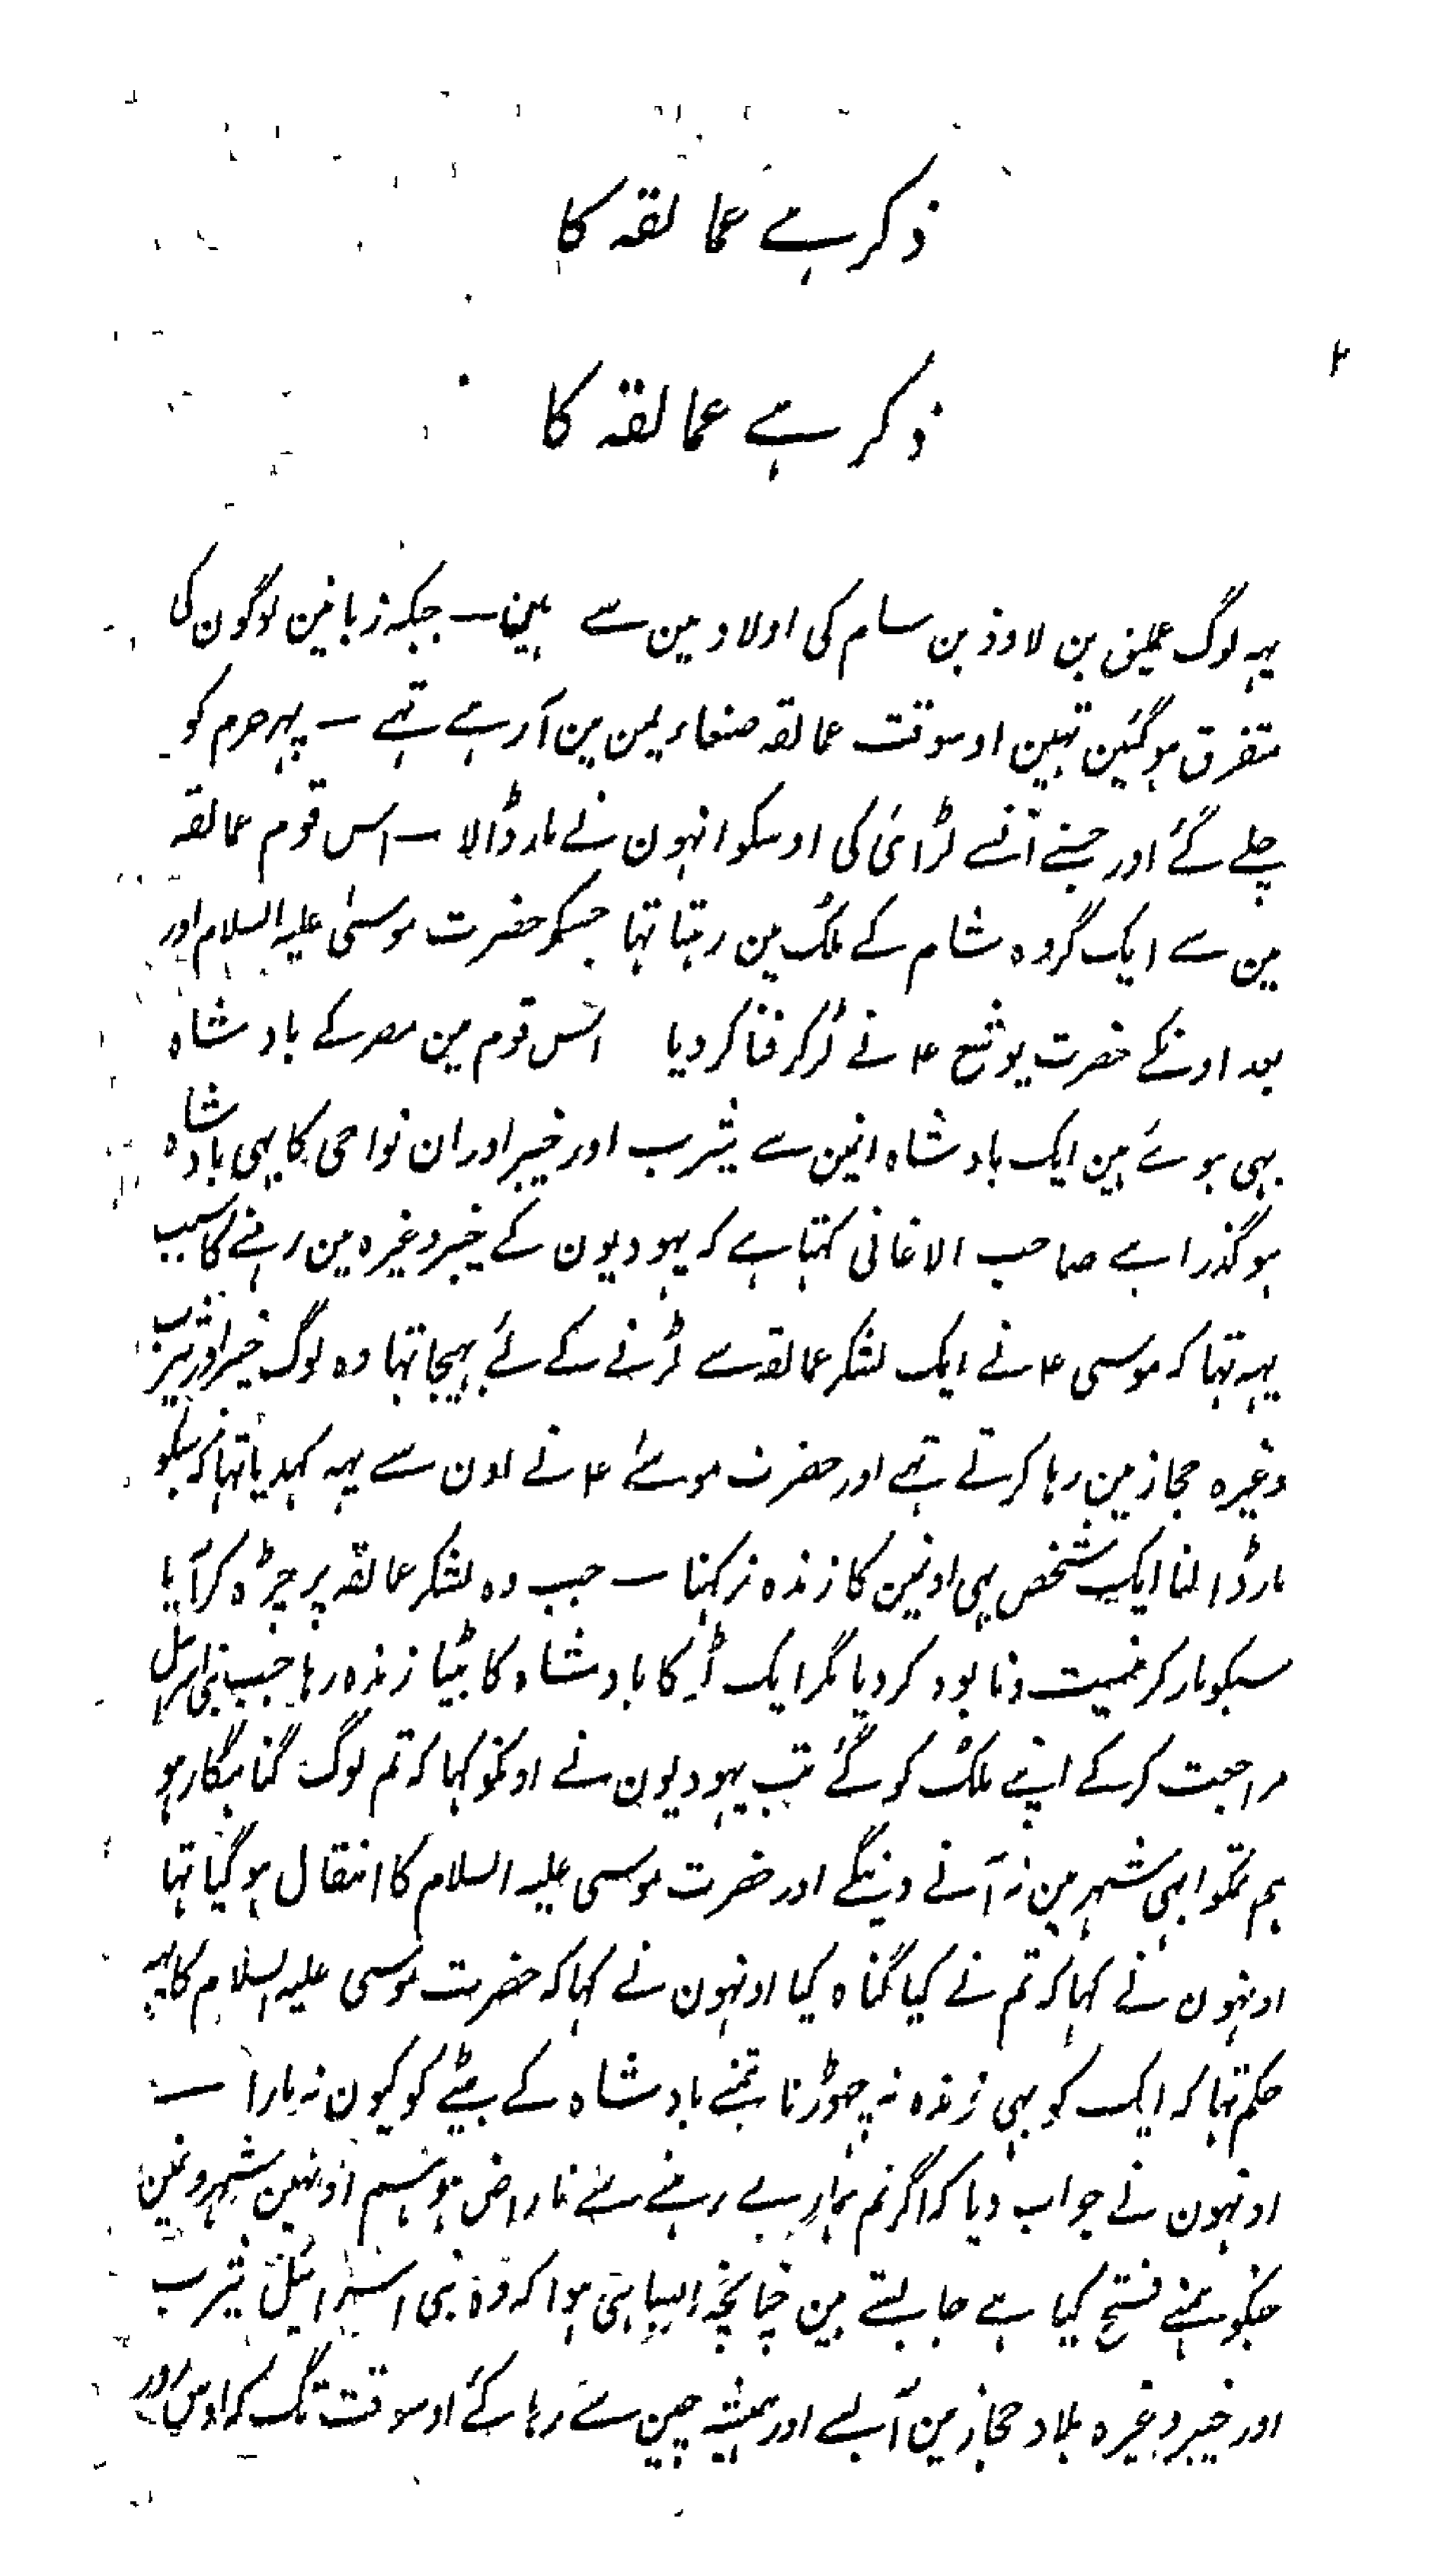 ذکر ہے عمالقہ کا
۲
ذکر ہے عمالقہ کا
یہہ لوگ عملیق بن لاوذ بن سام کی اولاد مین سے ہین — جبکہ زبانین لوگون کی
متفرق ہوگئین تہین اوسوقت عمالقہ صنعاء یمن مین آرہے تہے — پہر حرم کو
چلے گئے اور جسنے انسے لڑائی کی اوسکو انہون نے مار ڈالا — اس قوم عمالقہ
مین سے ایک گروہ شام کے ملک مین رہتا تہا جسکو حضرت موسیٰ علیہ السلام اور
بعد اونکے حضرت یوشع ۴ نے لڑکر فنا کر دیا اس قوم مین مصر کے بادشاہ
بہی ہوئے ہین ایک بادشاہ انین سے یثرب اور خیبر اور ان نواحی کا بہی بادشاہ
ہو گذرا ہے صاحب الاغانی کہتا ہے کہ یہودیون کے خیبر وغیرہ مین رہنے کا سبب
یہہ تہا کہ موسی ۴ نے ایک لشکر عمالقہ سے لڑنے کے لئے بہیجا تہا وہ لوگ خیبر اور یثرب
وغیرہ حجاز مین رہا کرتے تہے اور حضرت موسےٰ ۴ نے اون سے یہہ کہدیا تہا کہ سبکو
مار ڈالنا ایک شخص بہی اونین کا زندہ نرکہنا — جب وہ لشکر عمالقہ پر چڑہ کر آیا
سبکو مار کر نیست و نابود کر دیا مگر ایک لڑکا بادشاہ کا بیٹا زندہ رہا جب بنی اسرائیل
مراجعت کرکے اپنے ملک کو گئے تب یہودیون نے اونکو کہا کہ تم لوگ گناہگار ہو
ہم تمکو ابہی شہر مین نہ آنے دینگے اور حضرت موسی علیہ السلام کا انتقال ہو گیا تہا
اونہون نے کہا کہ تم نے کیا گناہ کیا اونہون نے کہا کہ حضرت موسی علیہ السلام کا یہہ
حکم تہا کہ ایک کو بہی زندہ نہ چہوڑنا تمنے بادشاہ کے بیٹے کو کیون نہ مارا —
اونہون نے جواب دیا کہ اگر تم ہمارے رہنے سے ناراض ہو ہم اونہین شہرونین
جنکو ہمنے فتح کیا ہے جا بستے ہین چنانچہ ایسا ہی ہوا کہ وہ بنی اسرائیل یثرب
اور خیبر وغیرہ بلاد حجاز مین آبسے اور ہمیشہ چین سے رہا کئے اوسوقت تک کہ اوس اور